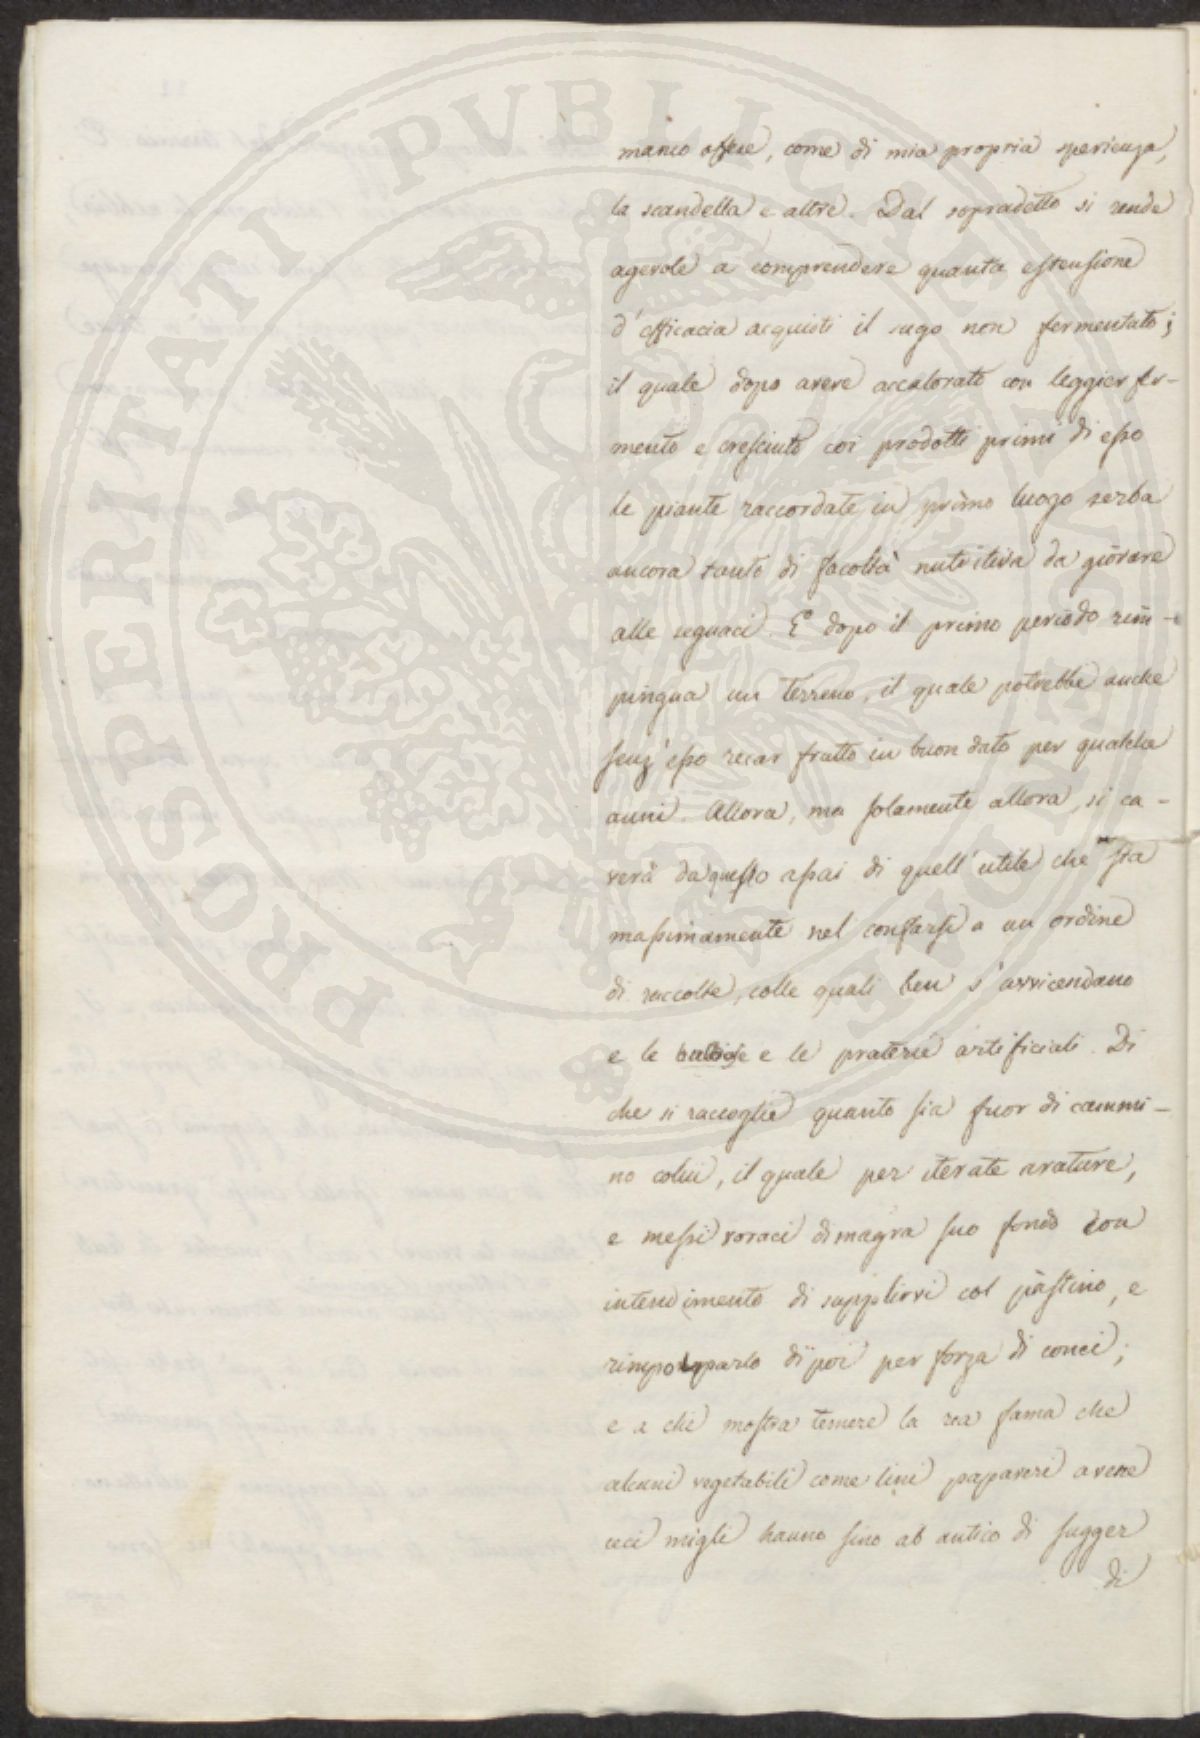 PROSPERITATI PUBLICAE AUGENDAE
manco offese, come di mia propria sperienza,
la scandella e altre. Dal sopradetto si rende
agevole a comprendere quanta estensione
d'efficacia acquisti il sugo non fermentato;
il quale dopo avere accalorato con leggier fer-
mento e cresciuto coi prodotti primi di esso
le piante raccordate in primo luogo serba
ancora tanto di facoltà nutritiva da giovare
alle seguaci. E dopo il primo periodo rim-
pingua un terreno, il quale potrebbe anche
senz'esso recar frutto in buon dato per qualche
anni. Allora, ma solamente allora, si ca-
verà da questo assai di quell'utile che sta
massimamente nel confarsi a un ordine
di raccolte, colle quali ben s'avvicendano
e le e le praterie artificiali. Di
che si raccoglie quanto sia fuor di cammi-
no colui, il quale per iterate arature,
e messi voraci dimagra suo fondo con
intendimento di supplirvi col pastino, e
rimpolparlo dipoi per forza di conci;
e a chi mostra temere la rea fama che
alcuni vegetabili come lini papaveri avene
ceci migli hanno sino ab antico di sugger
di